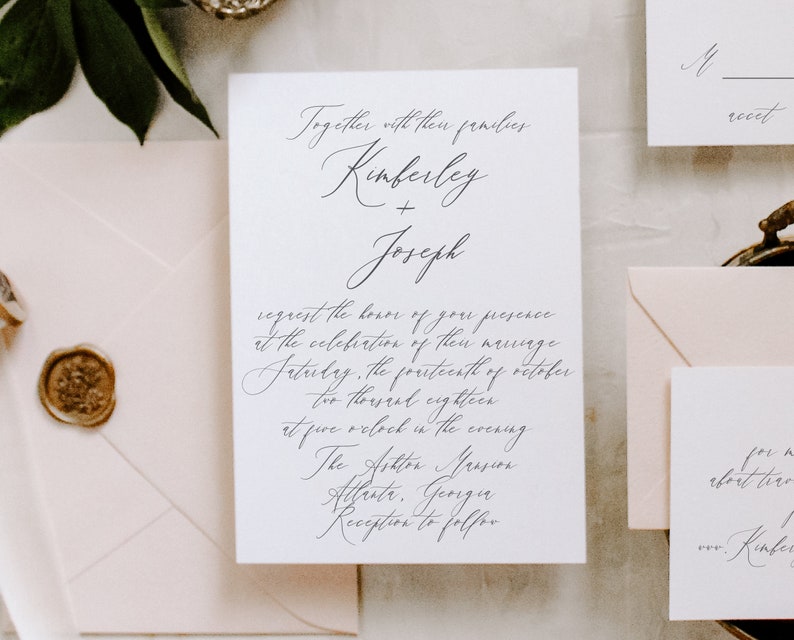 Together with their families
Kimberley
+
Joseph
request the honor of your presence
at the celebration of their marriage
Saturday, the fourteenth of october
two thousand eighteen
at five o'clock in the evening
The Ashton Mansion
Atlanta, Georgia
Reception to follow
M
accet
for m
about trav
www.Kimberl